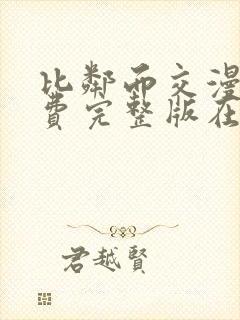 比鄰而交漫
費完整版在
君越賢